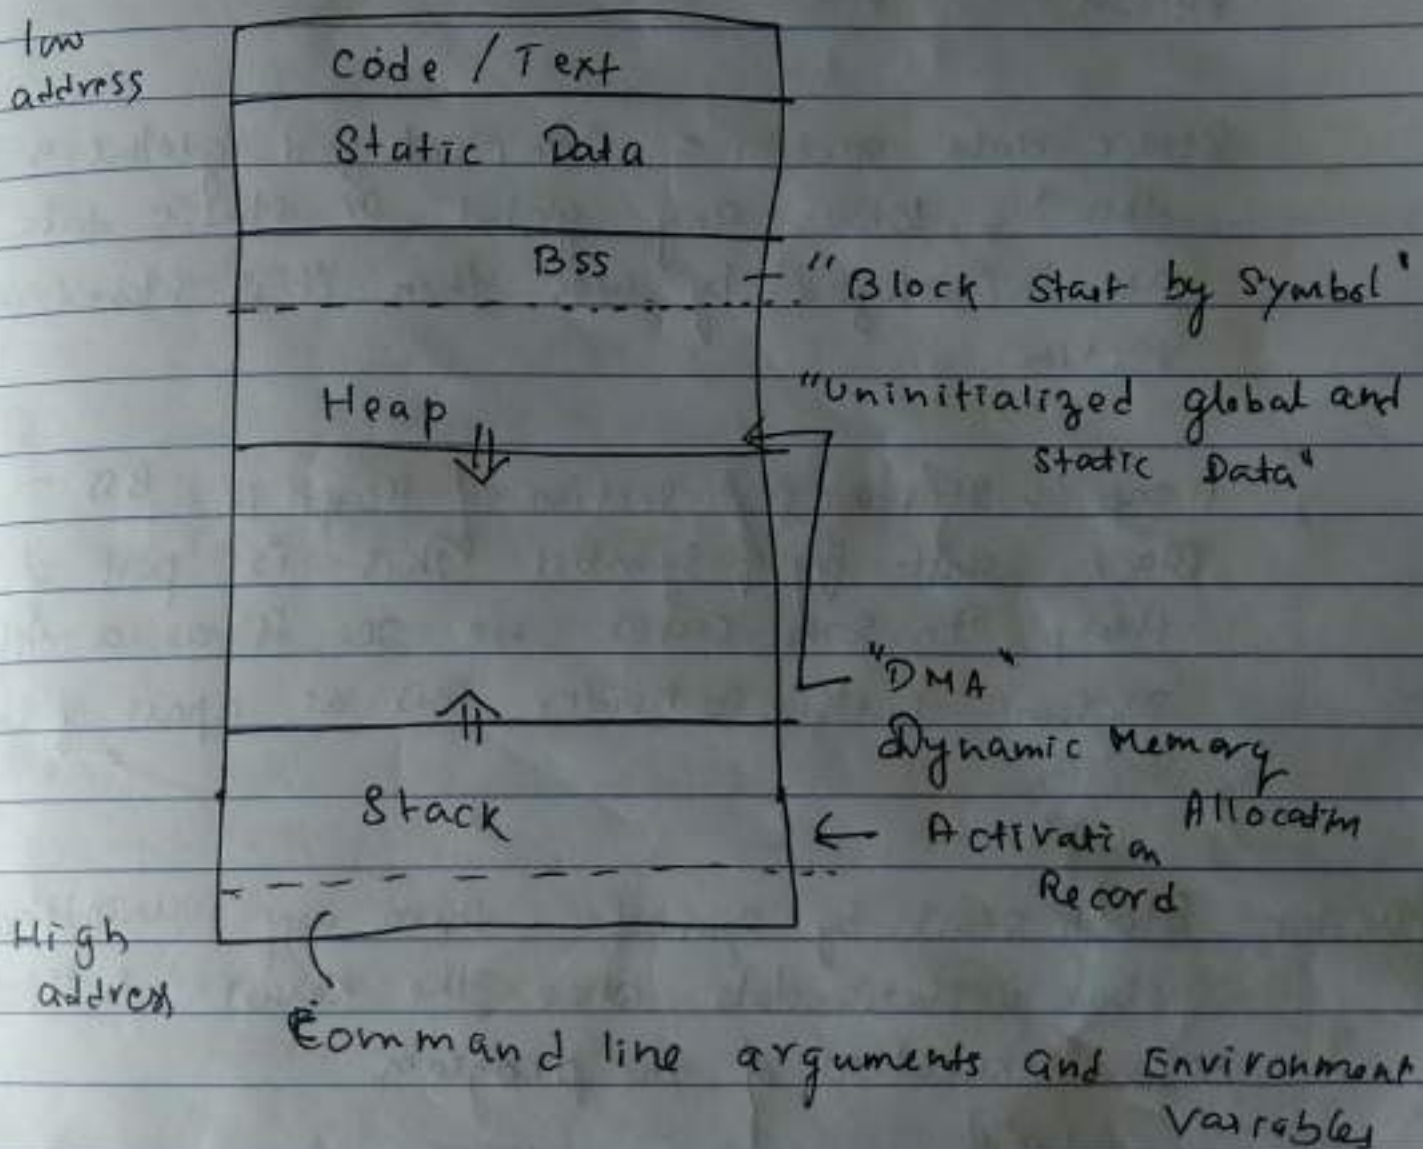 low
address
Code / Text
Static Data
BSS
"Block Start by Symbol"
Heap
"Uninitialized global and
Static Data"
"DMA"
Dynamic Memory
Allocatin
Stack
Activation
Record
High
address
Command line arguments and Environment
Variables